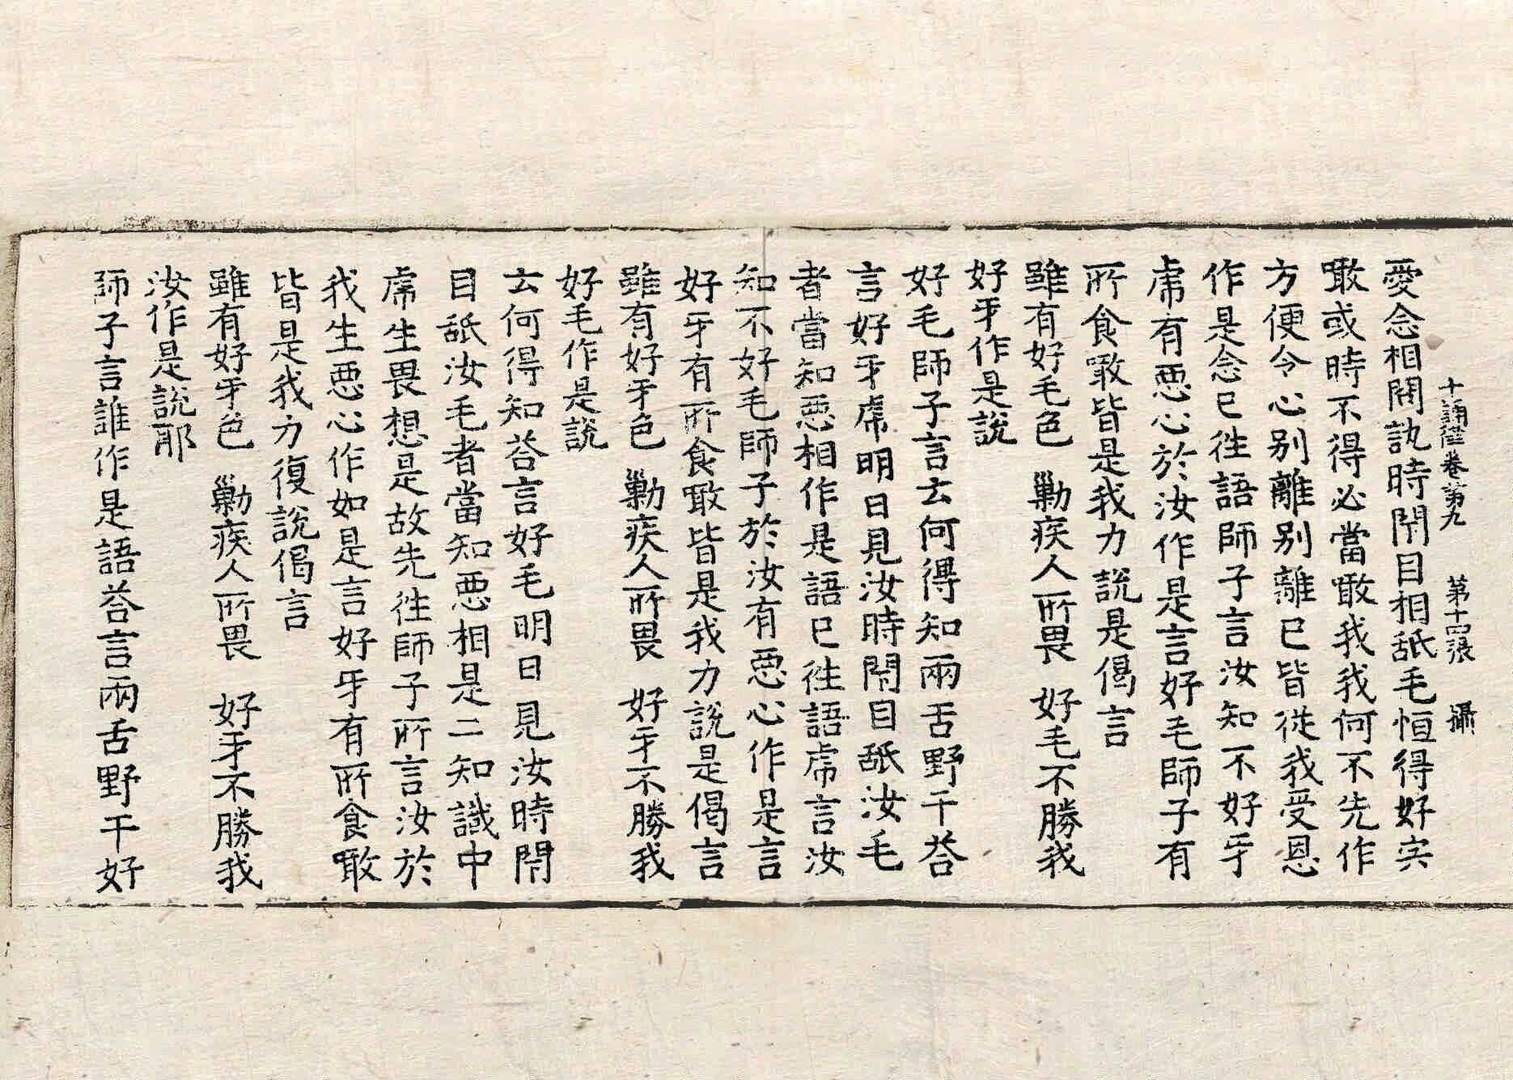 愛念相開訙時閇目相舐毛恒得好宍
十誦律卷第九　第十四張　攝
噉或時不得必當噉我我何不先作
方便令心别離别離已皆從我受恩
作是念已徃語師子言汝知不好牙
虎有惡心於汝作是言好毛師子有
所食噉皆是我力說是偈言
雖有好毛色　勦疾人所畏　好毛不勝我
好牙作是說
好毛師子言云何得知兩舌野干荅
言好牙虎明日見汝時閇目舐汝毛
者當知惡相作是語已徃語虎言汝
知不好毛師子於汝有惡心作是言
好牙有所食噉皆是我力說是偈言
雖有好牙色　勦疾人所畏　好牙不勝我
好毛作是說
云何得知荅言好毛明日見汝時閇
目舐汝毛者當知惡相是二知識中
虎生畏想是故先徃師子所言汝於
我生惡心作如是言好牙有所食噉
皆是我力復說偈言
雖有好牙色　勦疾人所畏　好牙不勝我
汝作是說耶
師子言誰作是語荅言兩舌野干好